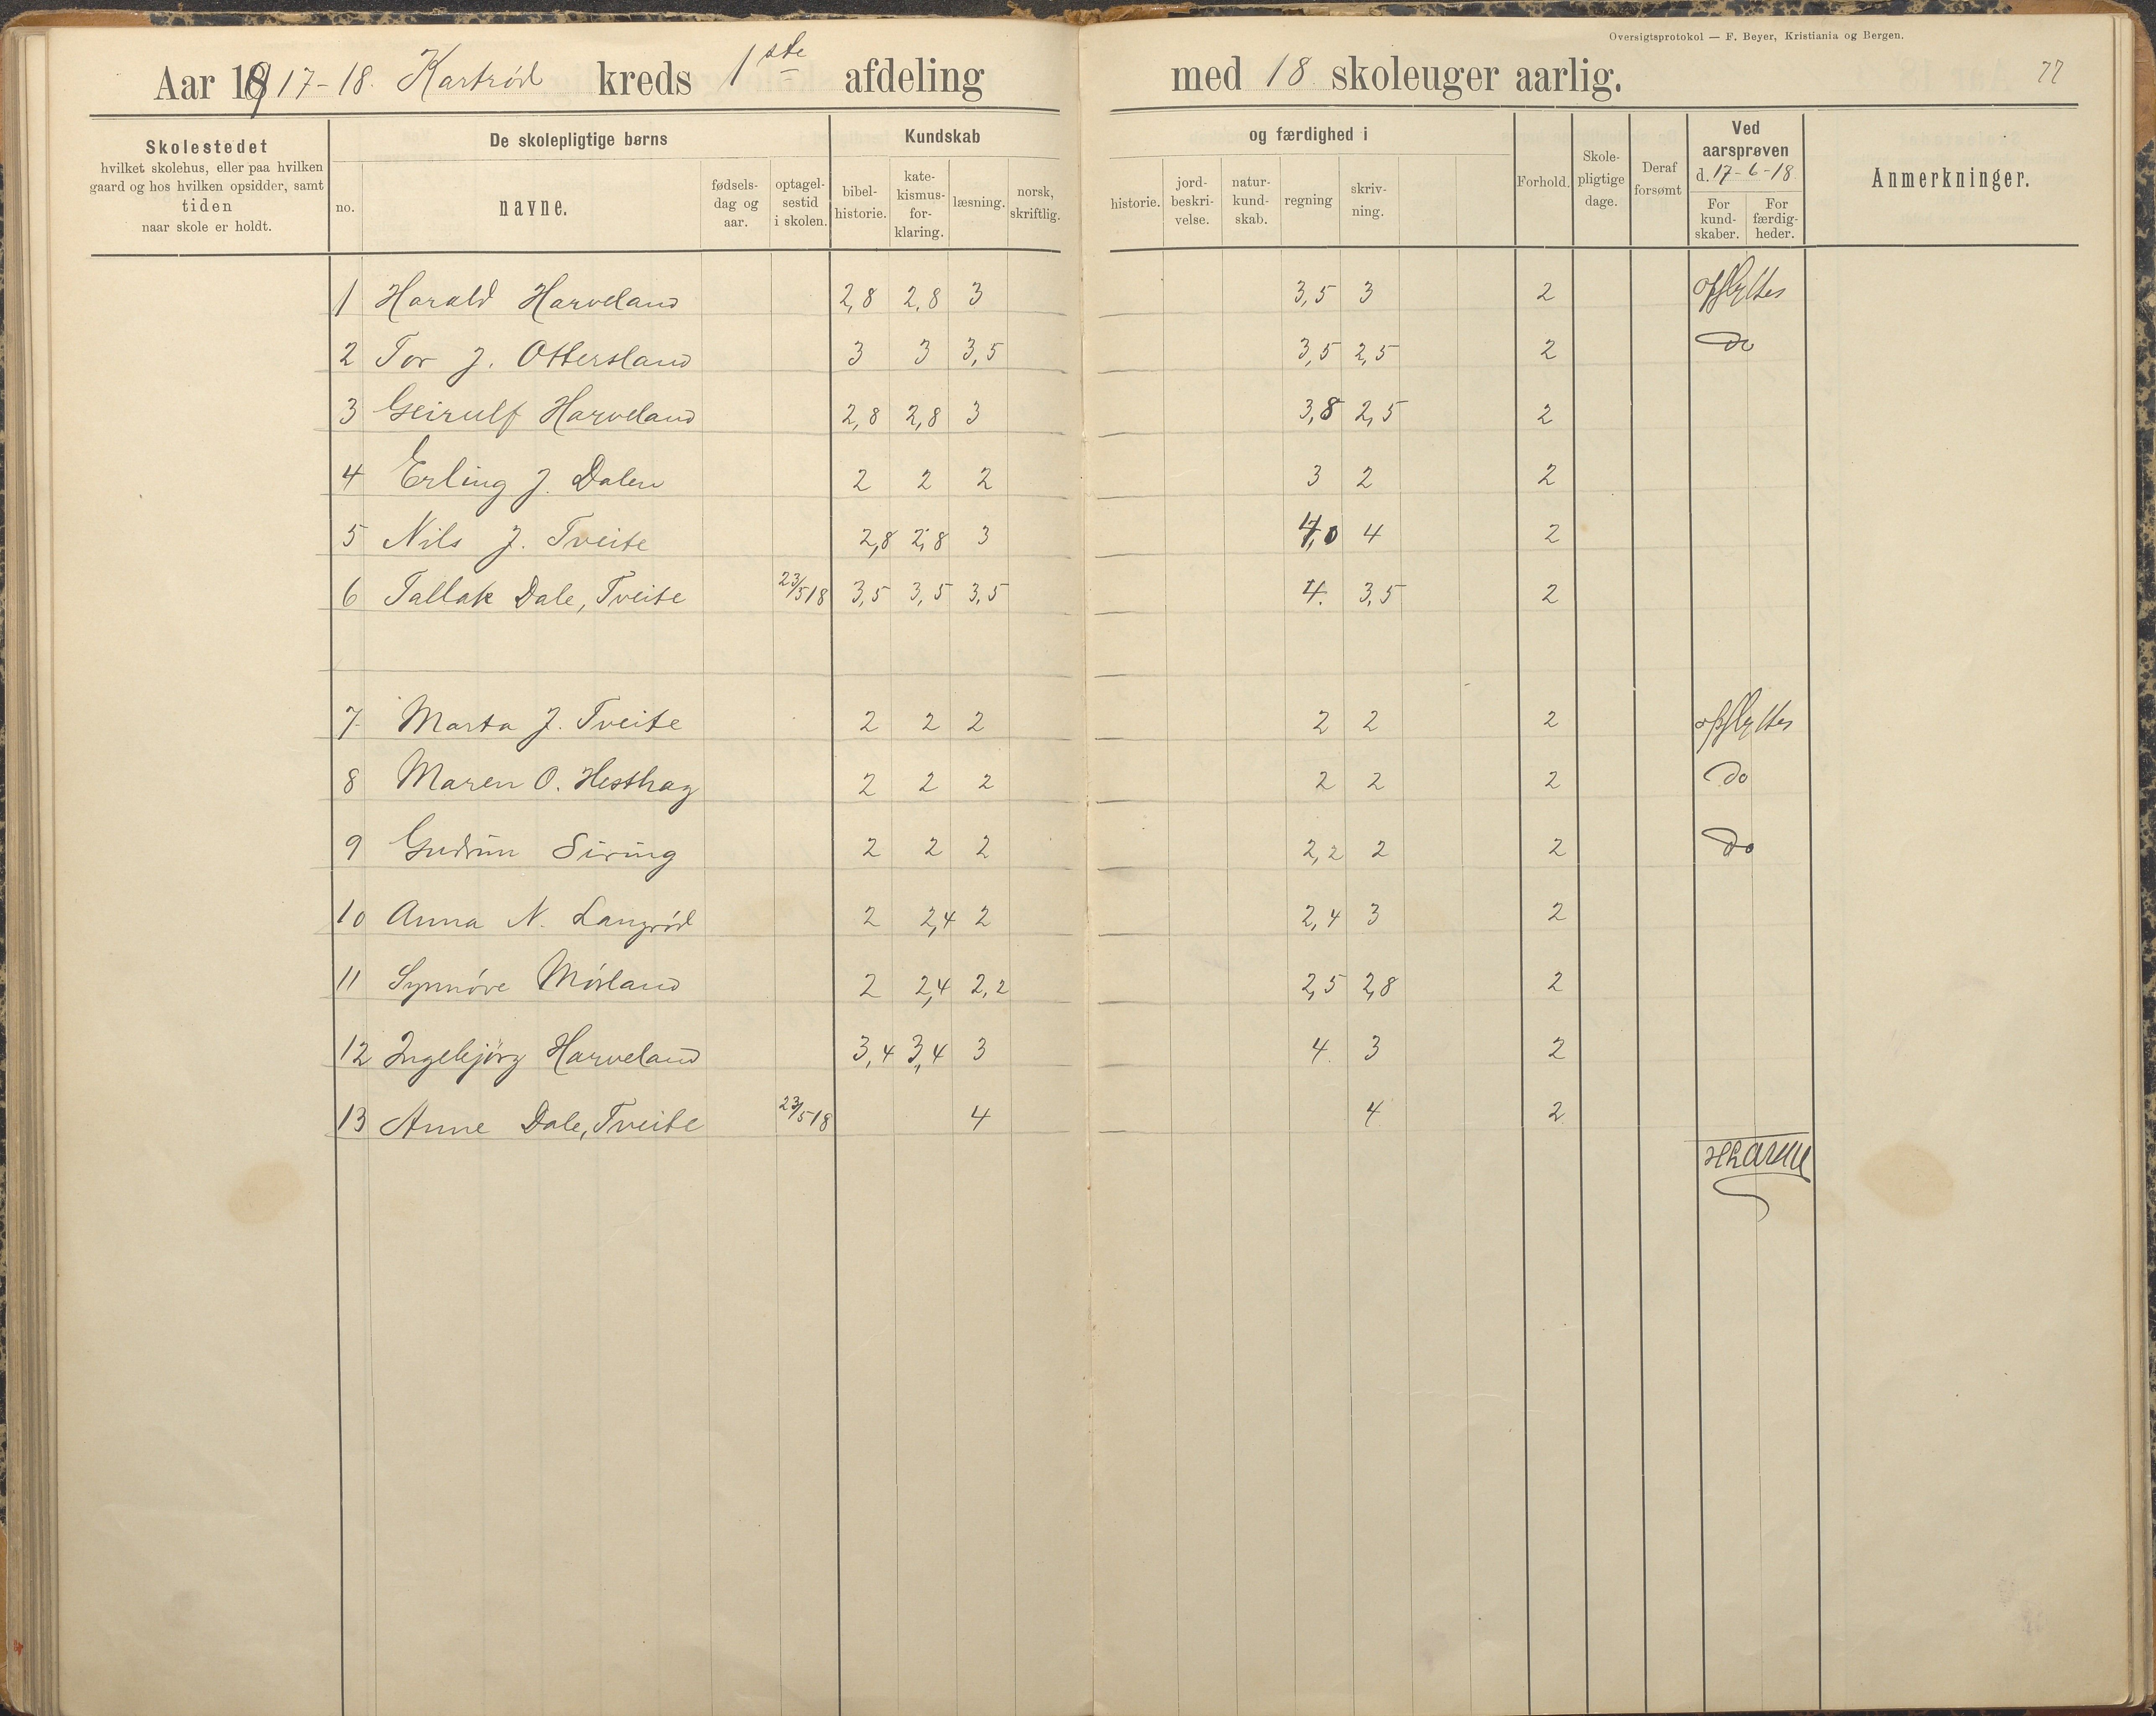 Oversigtsprotokol — F. Beyer, Kristiania og Bergen.
Aar 1917-18. Kartrød kreds 1ste afdeling med 18 skoleuger aarlig. 77
Skolestedet
hvilket skolehus, eller paa hvilken
gaard og hos hvilken opsidder, samt
tiden
naar skole er holdt.
De skolepligtige børns
no.
navne.
fødsels-
dag og
aar.
optagel-
sestid
i skolen.
Kundskab
bibel-
historie.
kate-
kismus-
for-
klaring.
læsning.
norsk,
skriftlig.
og færdighed i
historie.
jord-
beskri-
velse.
natur-
kund-
skab.
regning
skriv-
ning.
Forhold.
Skole-
pligtige
dage.
Deraf
forsømt
Ved
aarsprøven
d. 17-6-18.
For
kund-
skaber.
For
færdig-
heder.
Anmerkninger.
1 Harald Harveland 2,8 2,8 3 3,5 3 2 opflyttes
2 Tor J. Ottersland 3 3 3,5 3,5 2,5 2 do
3 Geirulf Harveland 2,8 2,8 3 3,8 2,5 2
4 Erling J. Dalen 2 2 2 3 2 2
5 Nils J. Tveite 2,8 2,8 3 4,0 4 2
6 Tallak Dale, Tveite 23/5 18 3,5 3,5 3,5 4. 3,5 2
7 Marta J. Tveite 2 2 2 2 2 2 opflyttes
8 Maren O. Hesthag 2 2 2 2 2 2 do
9 Gudrun Siring 2 2 2 2,2 2 2 do
10 Anna N. Langrød 2 2,4 2 2,4 3 2
11 Synnøve Mørland 2 2,4 2,2 2,5 2,8 2
12 Ingebjørg Harveland 3,4 3,4 3 4. 3 2
13 Anne Dale, Tveite 23/5 18 4 4 2